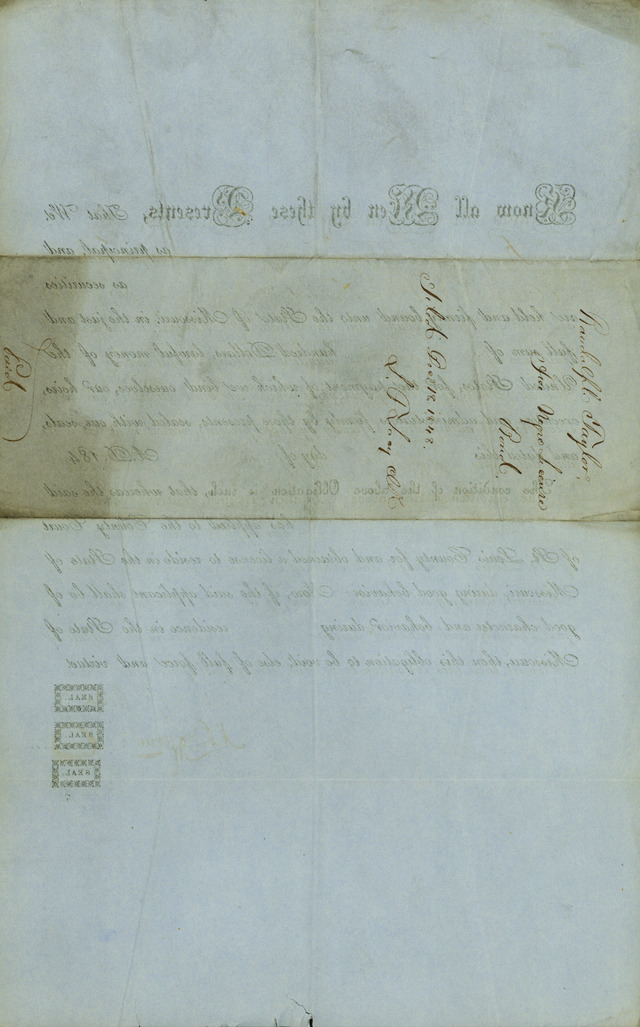 Know all Men by these Presents, That We
as principal, and
as securities
are held and firmly bound unto the State of Missouri, in the just and
full sum of hundred Dollars, lawful money of the
United States, for the payment of which we bind ourselves, our heirs,
executors and administrators, firmly by these presents, sealed with our seals,
and dated this day of A.D. 184
The condition of the above Obligation is such, that whereas the said
has applied to the County Court
of St. Louis County for and obtained a license to reside in the State of
Missouri, during good behavior: Now, if the said applicant shall be of
good character and behavior, during residence in the State of
Missouri, then this obligation to be void, else of full force and virtue.
SEAL.
SEAL.
SEAL.
Taylor
Negro License
Bond.
1848.